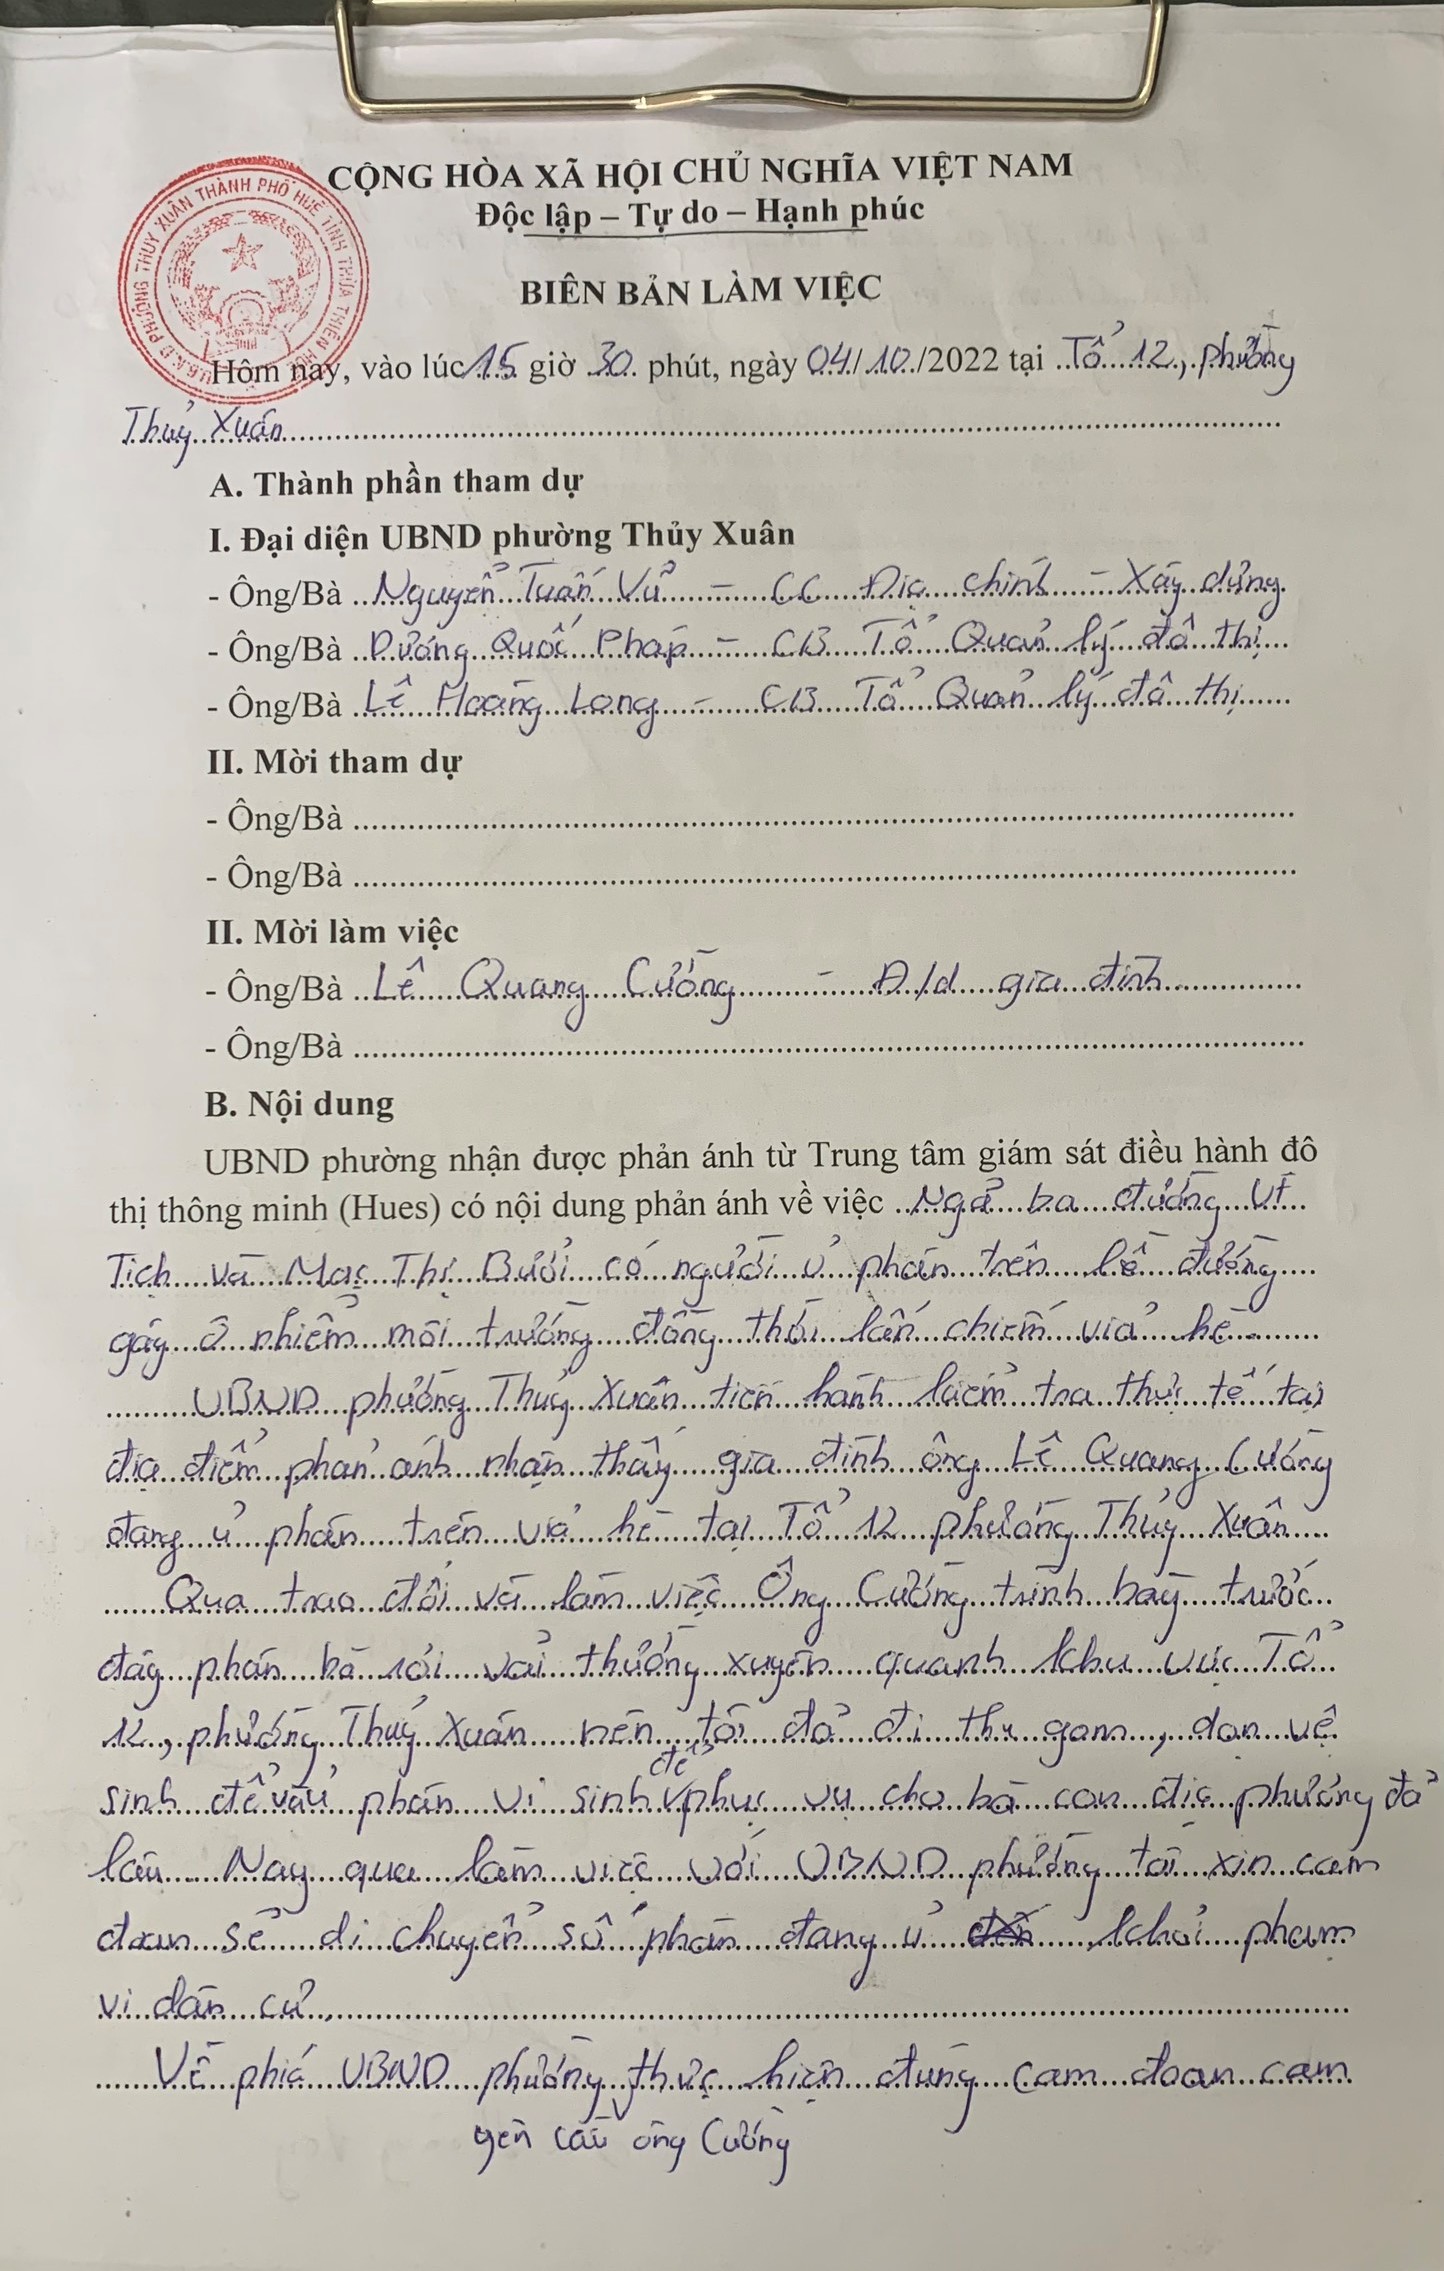 CỘNG HÒA XÃ HỘI CHỦ NGHĨA VIỆT NAM
Độc lập – Tự do – Hạnh phúc
BIÊN BẢN LÀM VIỆC
Hôm nay, vào lúc 15 giờ 30 phút, ngày 04/10/2022 tại Tổ 12, phường
Thuỷ Xuân
A. Thành phần tham dự
I. Đại diện UBND phường Thủy Xuân
- Ông/Bà Nguyễn Tuấn Vũ – CC Địa chính – Xây dựng
- Ông/Bà Dương Quốc Pháp – CB Tổ Quản lý đô thị
- Ông/Bà Lê Hoàng Long – CB Tổ Quản lý đô thị
II. Mời tham dự
- Ông/Bà
- Ông/Bà
II. Mời làm việc
- Ông/Bà Lê Quang Cường – Đ/d gia đình
- Ông/Bà
B. Nội dung
UBND phường nhận được phản ánh từ Trung tâm giám sát điều hành đô
thị thông minh (Hues) có nội dung phản ánh về việc Ngã ba đường
Tịch và Mạc Thị Bưởi có người ủ phân trên lề đường
gây ô nhiễm môi trường đồng thời lấn chiếm vỉa hè
UBND phường Thuỷ Xuân tiến hành kiểm tra thực tế tại
địa điểm phản ánh nhận thấy gia đình ông Lê Quang Cường
đang ủ phân trên vỉa hè tại Tổ 12 phường Thủy Xuân
Qua trao đổi và làm việc Ông Cường trình bày trước
đây phân bò rơi vãi thường xuyên quanh khu vực Tổ
12, phường Thuỷ Xuân nên tôi đã đi thu gom, dọn vệ
sinh để ủ phân vi sinh để phục vụ cho bà con địa phương đã
lâu. Nay qua làm việc với UBND phường tôi xin cam
đoan sẽ di chuyển số phân đang ủ, khỏi phạm
vi dân cư.
Về phía UBND phường thực hiện đúng cam đoan cam
cầu ông Cường